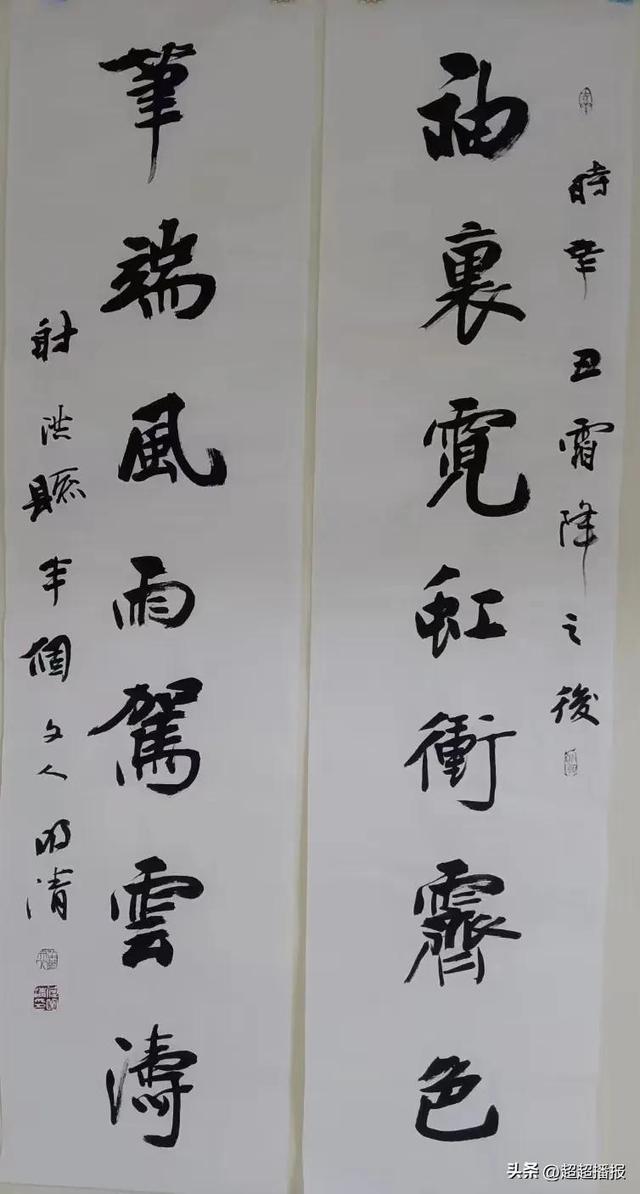 時辛丑霜降之後
袖裏霓虹衝霽色
筆端風雨駕雲濤
射洪縣半個文人明清
头条 @超超播报